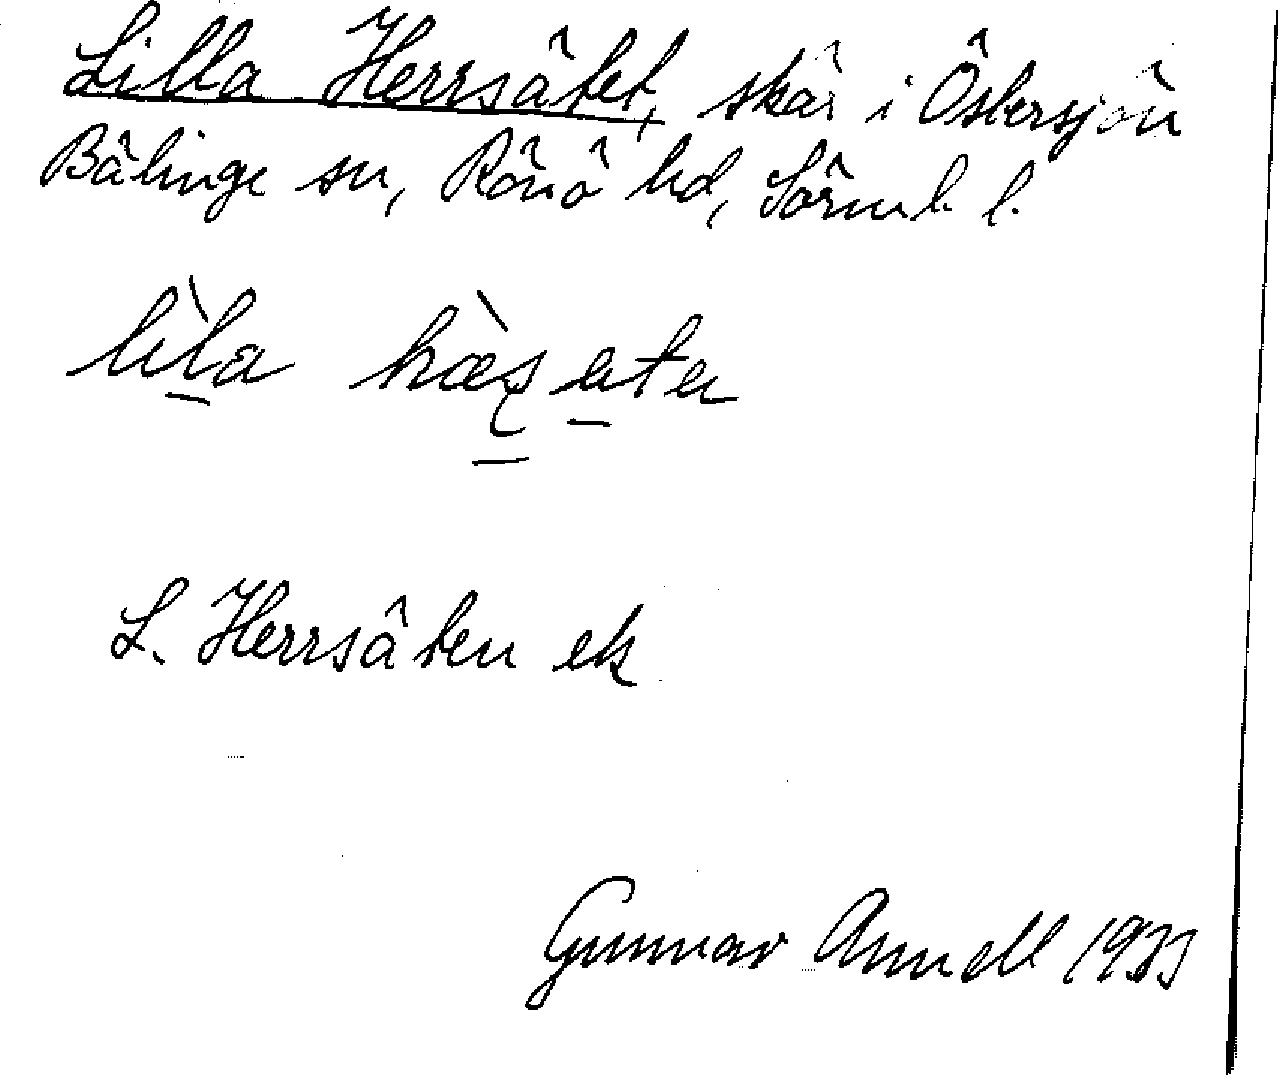 Lilla Herrsätet, skär i Östersjön
Bälinge sn, Rönö hd, Sörml. l.
lìla hæ̀ʂətə
L. Herrsäten ek
Gunnar Annell 1933